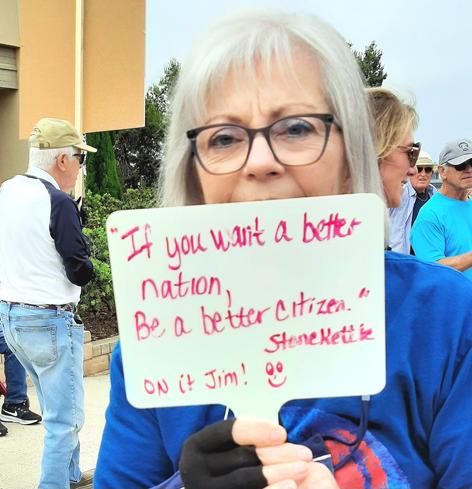 "If you want a better
nation,
Be a better citizen."
StoneKettle
ON it Jim!